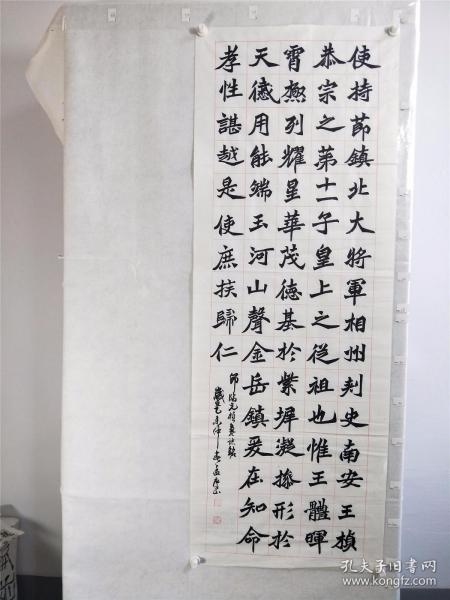 使持節鎮北大將軍相州刺史南安王楨
恭宗之第十一子皇上之從祖也惟王體暉
霄極列耀星華茂德基於紫墀凝操形於
天感用能端玉河山聲金岳鎮爰在知命
孝性諶越是使庶族歸仁
孔夫子旧书网
www.kongfz.com